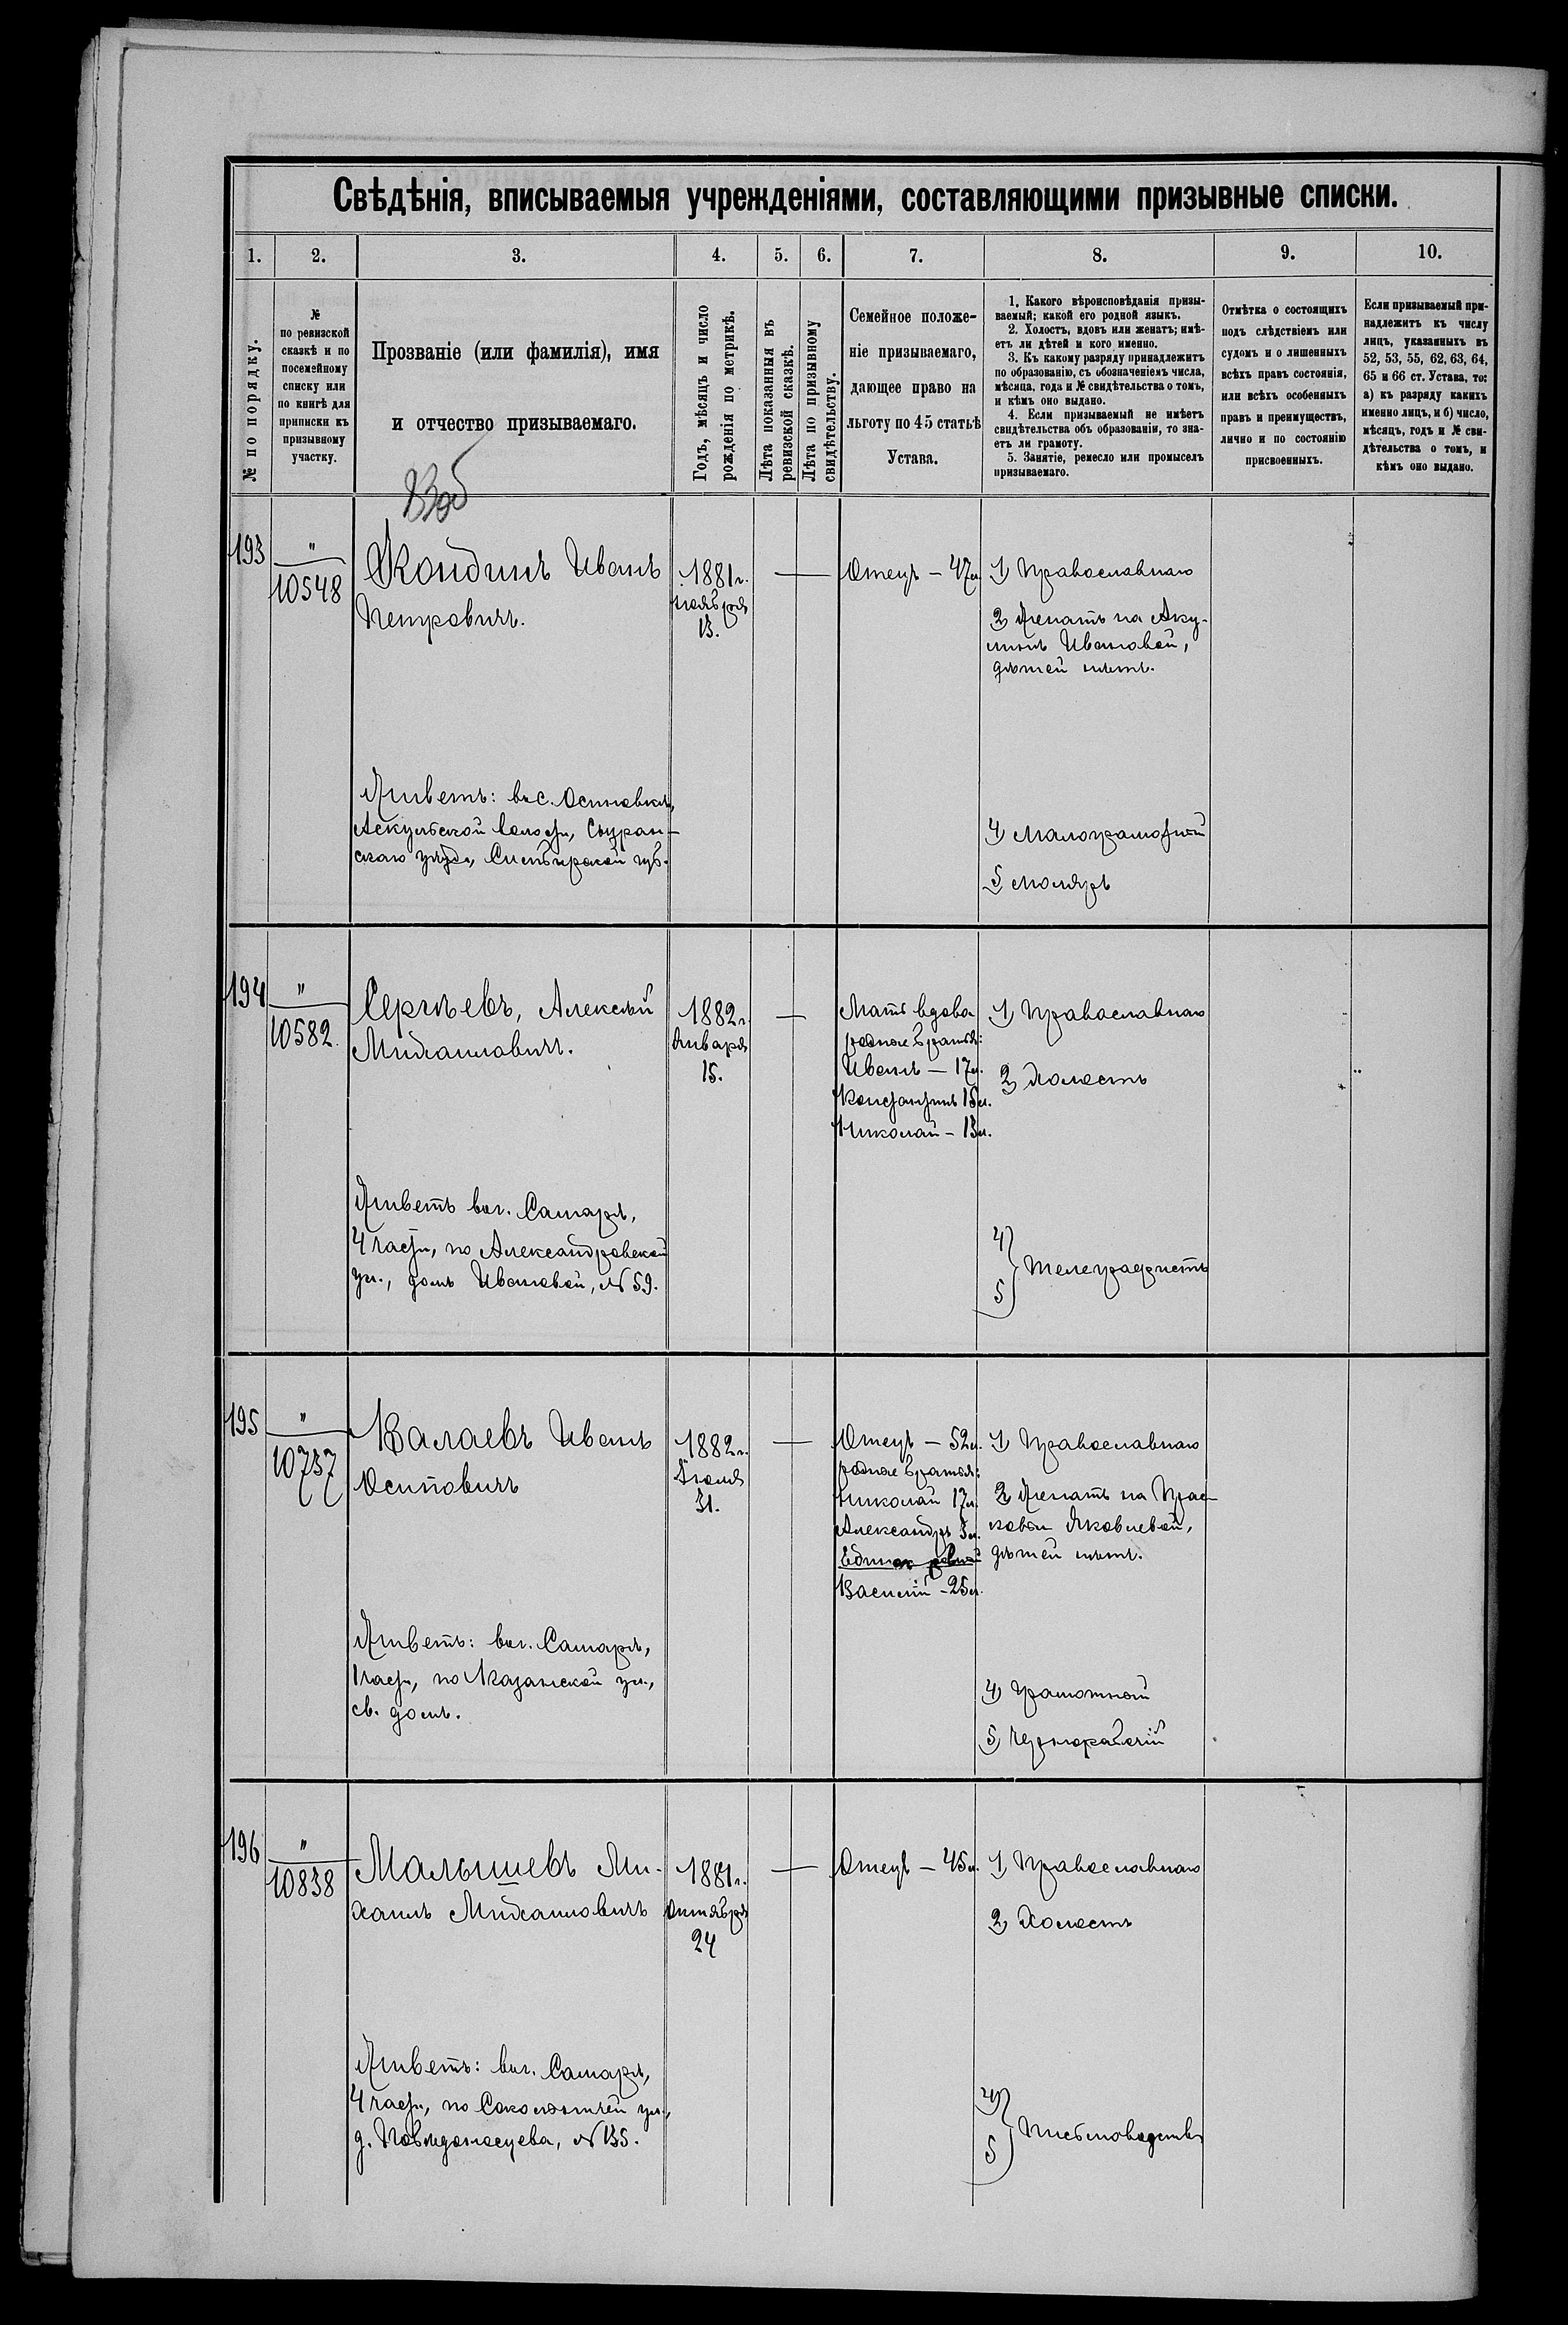 Свѣдѣнія, вписываемыя учрежденіями, составляющими призывные списки.
1. 2. 3. 4. 5. 6. 7. 8. 9. 10.
№ по порядку.
№
по ревизской
сказкѣ и по
посемейному
списку или
по книгѣ для
приписки къ
призывному
участку.
Прозваніе (или фамилія), имя
и отчество призываемаго.
Годъ, мѣсяцъ и число
рожденія по метрикѣ.
Лѣта показанныя въ
ревизской сказкѣ.
Лѣта по призывному
свидѣтельству.
Семейное положе-
ніе призываемаго,
дающее право на
льготу по 45 статьѣ
Устава.
1. Какого вѣроисповѣданія призы-
ваемый; какой его родной языкъ.
2. Холостъ, вдовъ или женатъ; имѣ-
етъ ли дѣтей и кого именно.
3. Къ какому разряду принадлежитъ
по образованію, съ обозначеніемъ числа,
мѣсяца, года и № свидѣтельства о томъ,
и кѣмъ оно выдано.
4. Если призываемый не имѣетъ
свидѣтельства объ образованіи, то зна-
етъ ли грамоту.
5. Занятіе, ремесло или промыселъ
призываемаго.
Отмѣтка о состоящихъ
подъ слѣдствіемъ или
судомъ и о лишенныхъ
всѣхъ правъ состоянія,
или всѣхъ особенныхъ
правъ и преимуществъ,
лично и по состоянію
присвоенныхъ.
Если призываемый при-
надлежитъ къ числу
лицъ, указанныхъ въ
52, 53, 55, 62, 63, 64,
65 и 66 ст. Устава, то:
а) къ разряду какихъ
именно лицъ, и б) число,
мѣсяцъ, годъ и № сви-
дѣтельства о томъ, и
кѣмъ оно выдано.
193
"
10548
Кондинъ Иванъ
Петровичъ.
Живетъ: въ с. Осиновкѣ,
Аскульской волости, Сызран-
скаго уѣзда, Симбирской губ.
1881 г.
ноября
13.
Отецъ – 47 л.
1) Православнаго
2) Женатъ на Аку-
линѣ Ивановой,
дѣтей нѣтъ.
4) Малограмотный
5) Маляръ
194
"
10582.
Сергѣевъ, Алексѣй
Михаиловичъ.
Живетъ въ г. Самарѣ,
4 части, по Александровской
ул., домъ Ивановой, № 59.
1882 г.
Января
15.
Мать вдова
родные братья:
Иванъ – 17 л.
Константинъ 15 л.
Николай – 13 л.
1) Православнаго
2) Холостъ
4
5
Телеграфистъ
195
"
10737
Валаевъ Иванъ
Осиповичъ
Живетъ: въ г. Самарѣ,
1 части, по Казанской ул.,
св. домъ.
1882 г.
Іюля
31.
Отецъ – 52 л.
родные братья:
Николай 17 л.
Александръ 3 л.
Василій – 25 л.
1) Православнаго
2) Женатъ на Прас-
ковьи Яковлевой,
дѣтей нѣтъ.
4) Грамотный
5) Чернорабочій
196
"
10838
Малышевъ Ми-
хаилъ Михаиловичъ
Живетъ: въ г. Самарѣ,
4 части, по Сокольничей ул.,
д. Побѣдоносцева, № 135.
1881 г.
Октября
24
Отецъ – 45 л.
1) Православнаго
2) Холостъ
4)
5
Письмоводство